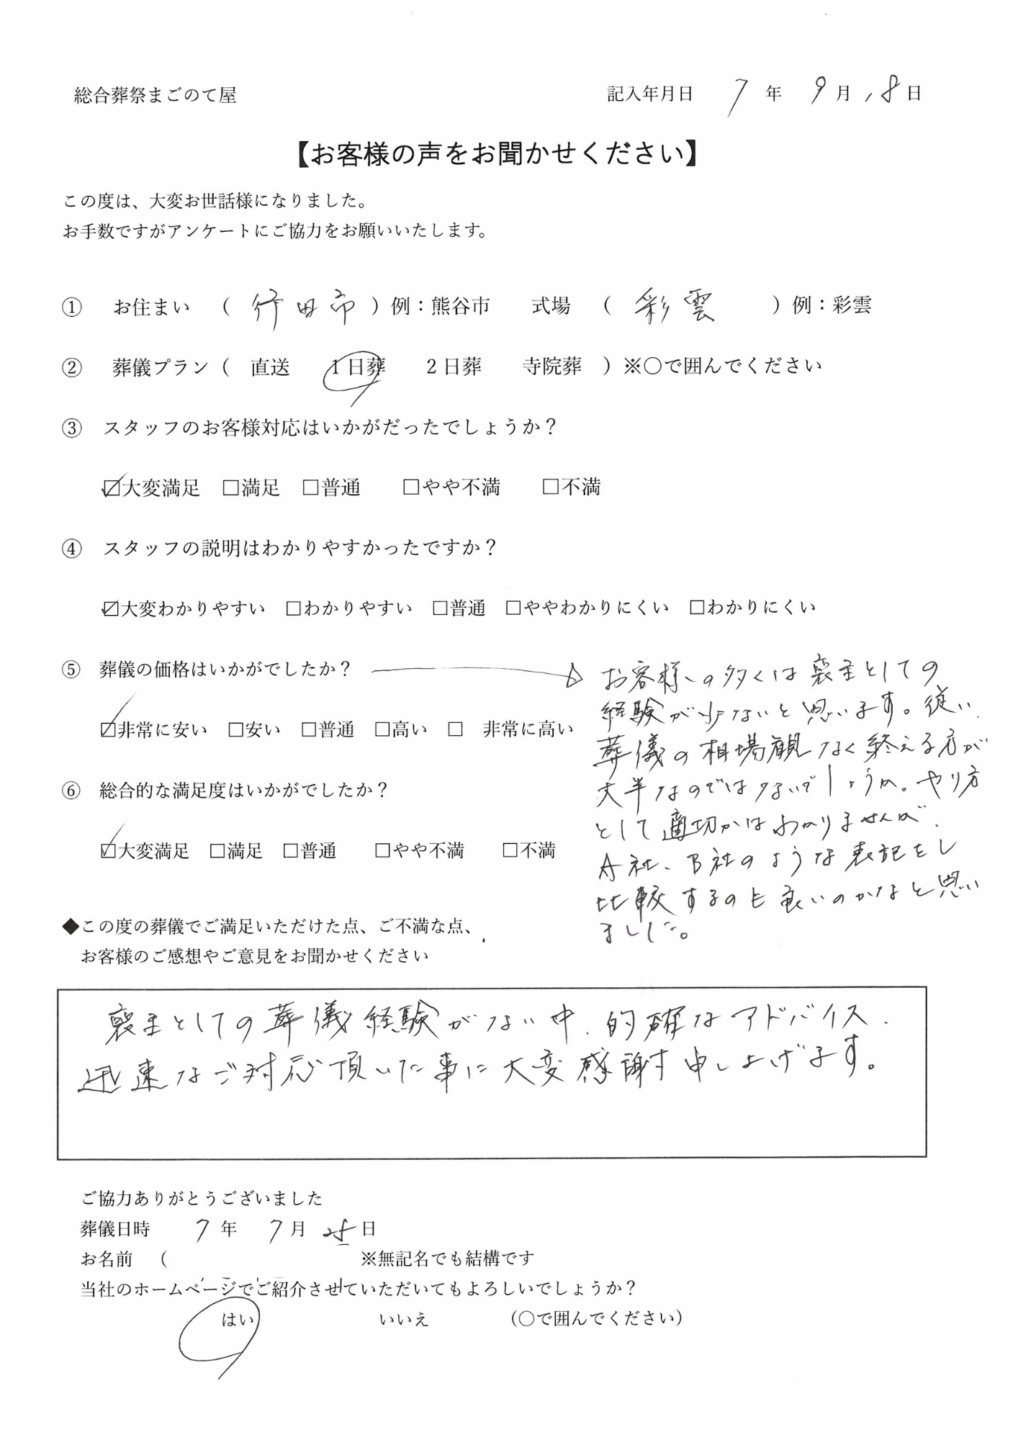 総合葬祭まごのて屋
記入年月日 7年 9月 18日
【お客様の声をお聞かせください】
この度は、大変お世話様になりました。
お手数ですがアンケートにご協力をお願いいたします。
① お住まい ( 行田市 ) 例：熊谷市 式場 ( 彩雲 ) 例：彩雲
② 葬儀プラン ( 直送 1日葬 2日葬 寺院葬 ) ※〇で囲んでください
③ スタッフのお客様対応はいかがだったでしょうか？
☑大変満足 □満足 □普通 □やや不満 □不満
④ スタッフの説明はわかりやすかったですか？
☑大変わかりやすい □わかりやすい □普通 □ややわかりにくい □わかりにくい
⑤ 葬儀の価格はいかがでしたか？
☑非常に安い □安い □普通 □高い □ 非常に高い
お客様の多くは喪主としての
経験が少ないと思います。従い、
葬儀の相場観なく終える方が
大半なのではないでしょうか。やり方
として適切かはわかりませんが、
A社、B社のような表記をし
比較するのも良いのかなと思い
ました。
⑥ 総合的な満足度はいかがでしたか？
☑大変満足 □満足 □普通 □やや不満 □不満
◆この度の葬儀でご満足いただけた点、ご不満な点、
お客様のご感想やご意見をお聞かせください
喪主としての葬儀経験がない中、的確なアドバイス、
迅速なご対応頂いた事に大変感謝申し上げます。
ご協力ありがとうございました
葬儀日時 7年 7月 28日
お名前 ( ※無記名でも結構です
当社のホームページでご紹介させていただいてもよろしいでしょうか？
はい いいえ (〇で囲んでください)